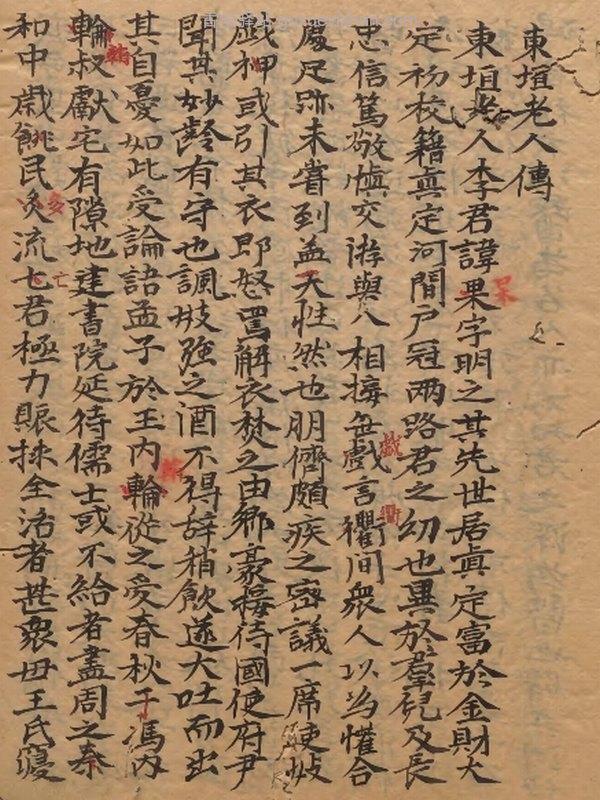 東垣老人傳
東垣老人李君諱果字明之其先世居真定富於金財大
定初校籍真定河間户冠兩路君之幼也異於羣兒及長
忠信篤敬慎交游與人相接無戲言衢間衆人以為懽合
處足跡未嘗到蓋天性然也朋儕頗疾之密議一席使妓
戲狎或引其衣即怒罵解衣焚之由鄉豪接待國使府尹
聞其妙齡有守也諷妓強之酒不得辭稍飲遂大吐而出
其自愛如此受論語孟子於王内翰從之受春秋于馮内
翰叔獻宅有隙地建書院延待儒士或不給者盡周之泰
和中歲飢民多流亡君極力賑捄全活者甚衆母王氏寢
杲
戲
衢
翰
翰
多
亡